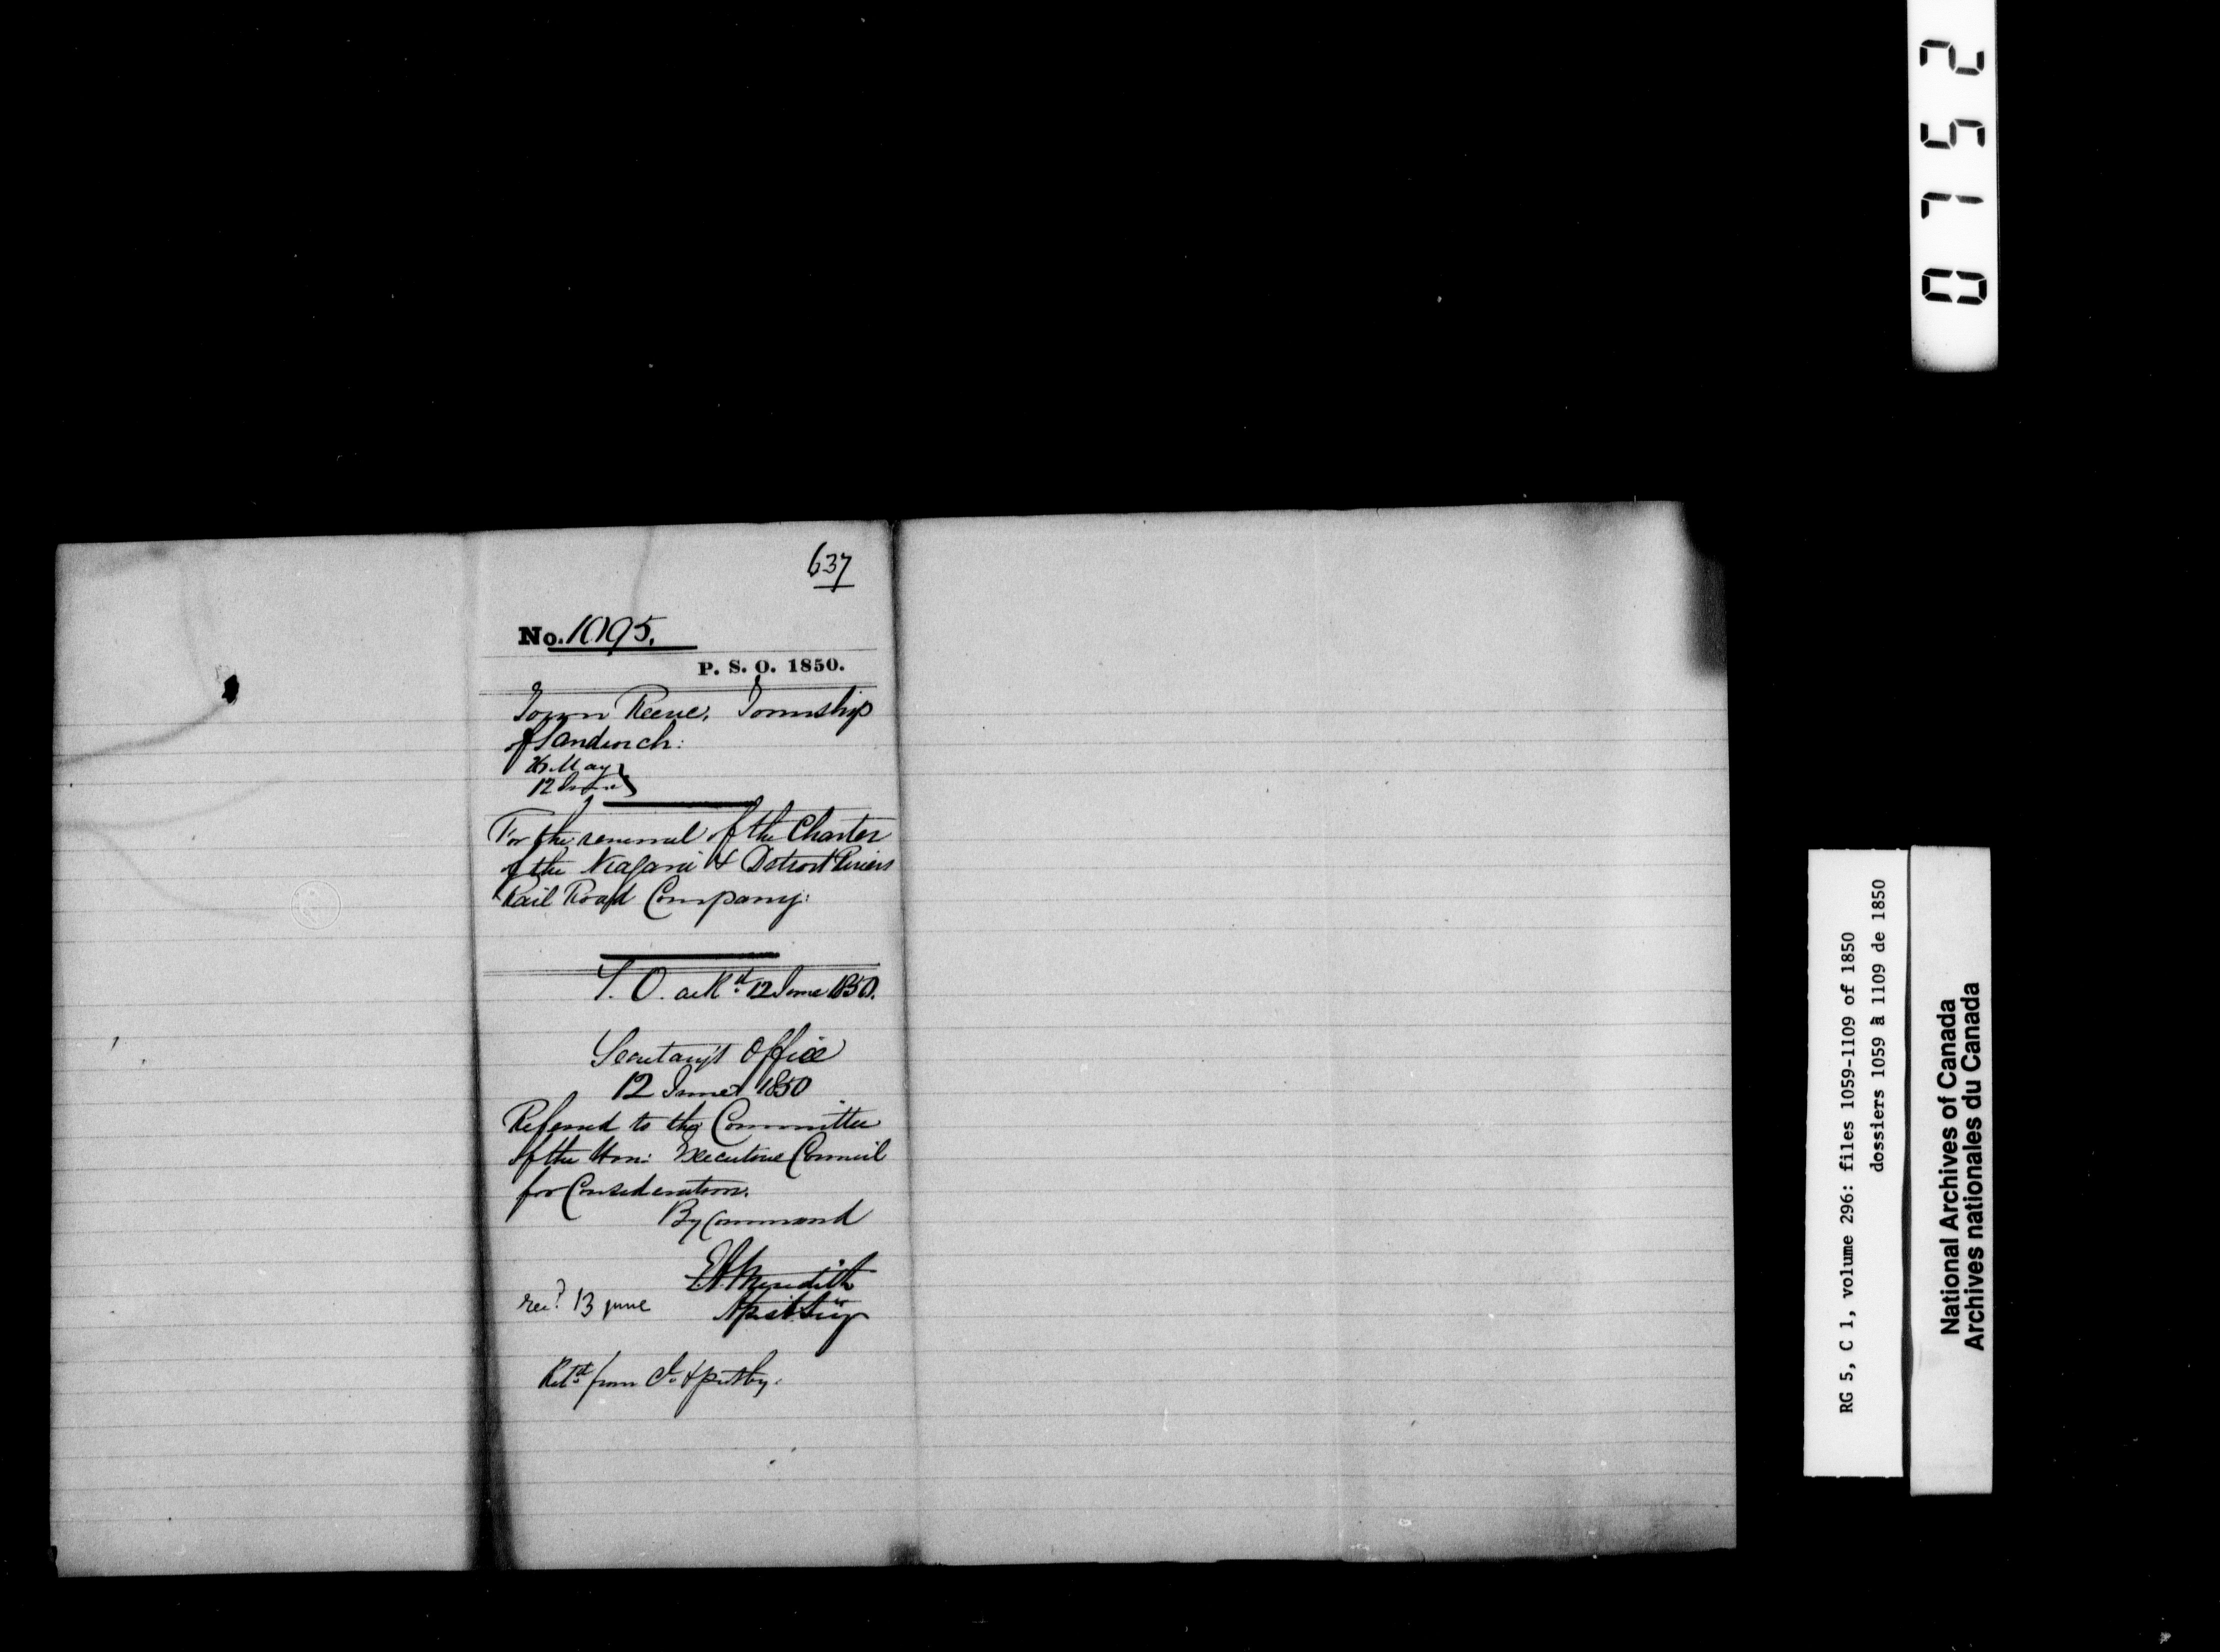 637
No. 1095.
P. S. O. 1850.
Town Reeve, Township
of Sandwich:
May
12 June
For the renewal of the Charter
of the Niagara & Detroit Rivers
Rail Road Company:
L. O. ackd 12 June 1850.
Secretary's Office
12 June 1850
Referred to the Committee
of the Hon: Executive Council
for Consideration.
By Command
E. A. Meredith
Asst. Secy
recd 13 june
Retd from
0752
RG 5, C 1, volume 296: files 1059-1109 of 1850
dossiers 1059 à 1109 de 1850
National Archives of Canada
Archives nationales du Canada